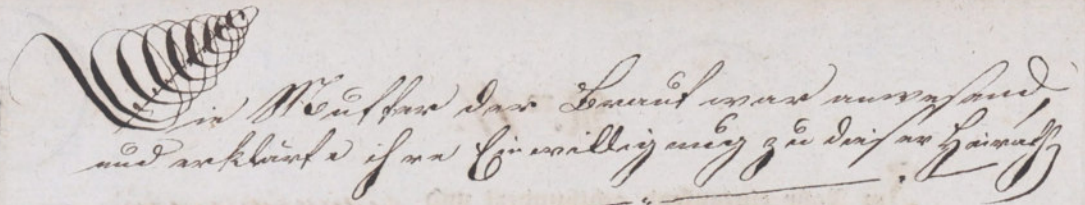 Die Mutter der Braut war anwesend,
und erklärte ihre Einwilligung zu dieser Heirath